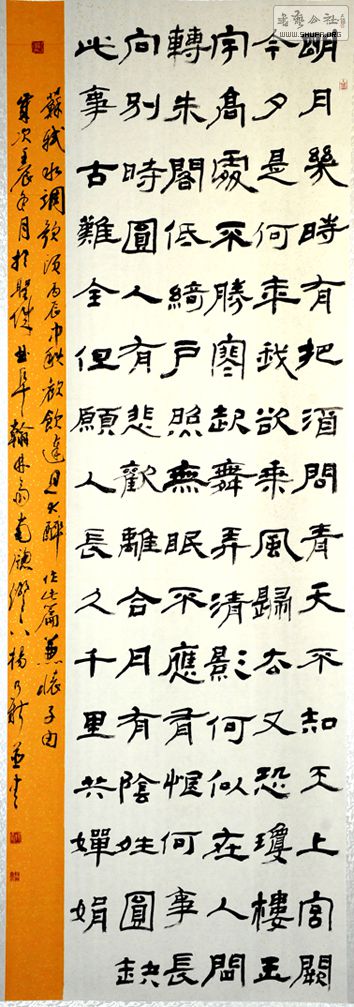 WWW.SHUFA.ORG
明月幾時有把酒問青天不知天上宮闕
今夕是何年我欲乘風歸去又恐瓊樓玉
宇高處不勝寒起舞弄清影何似在人間
轉朱閣低綺戶照無眠不應有恨何事長
向別時圓人有悲歡離合月有陰夝圓缺
此事古難全但願人長久千里共嬋娟
蘇軾水調歌頭丙辰中秋歡飲達旦大醉作此篇兼懷子由
歲次壬辰年月於聖城曲阜翰林